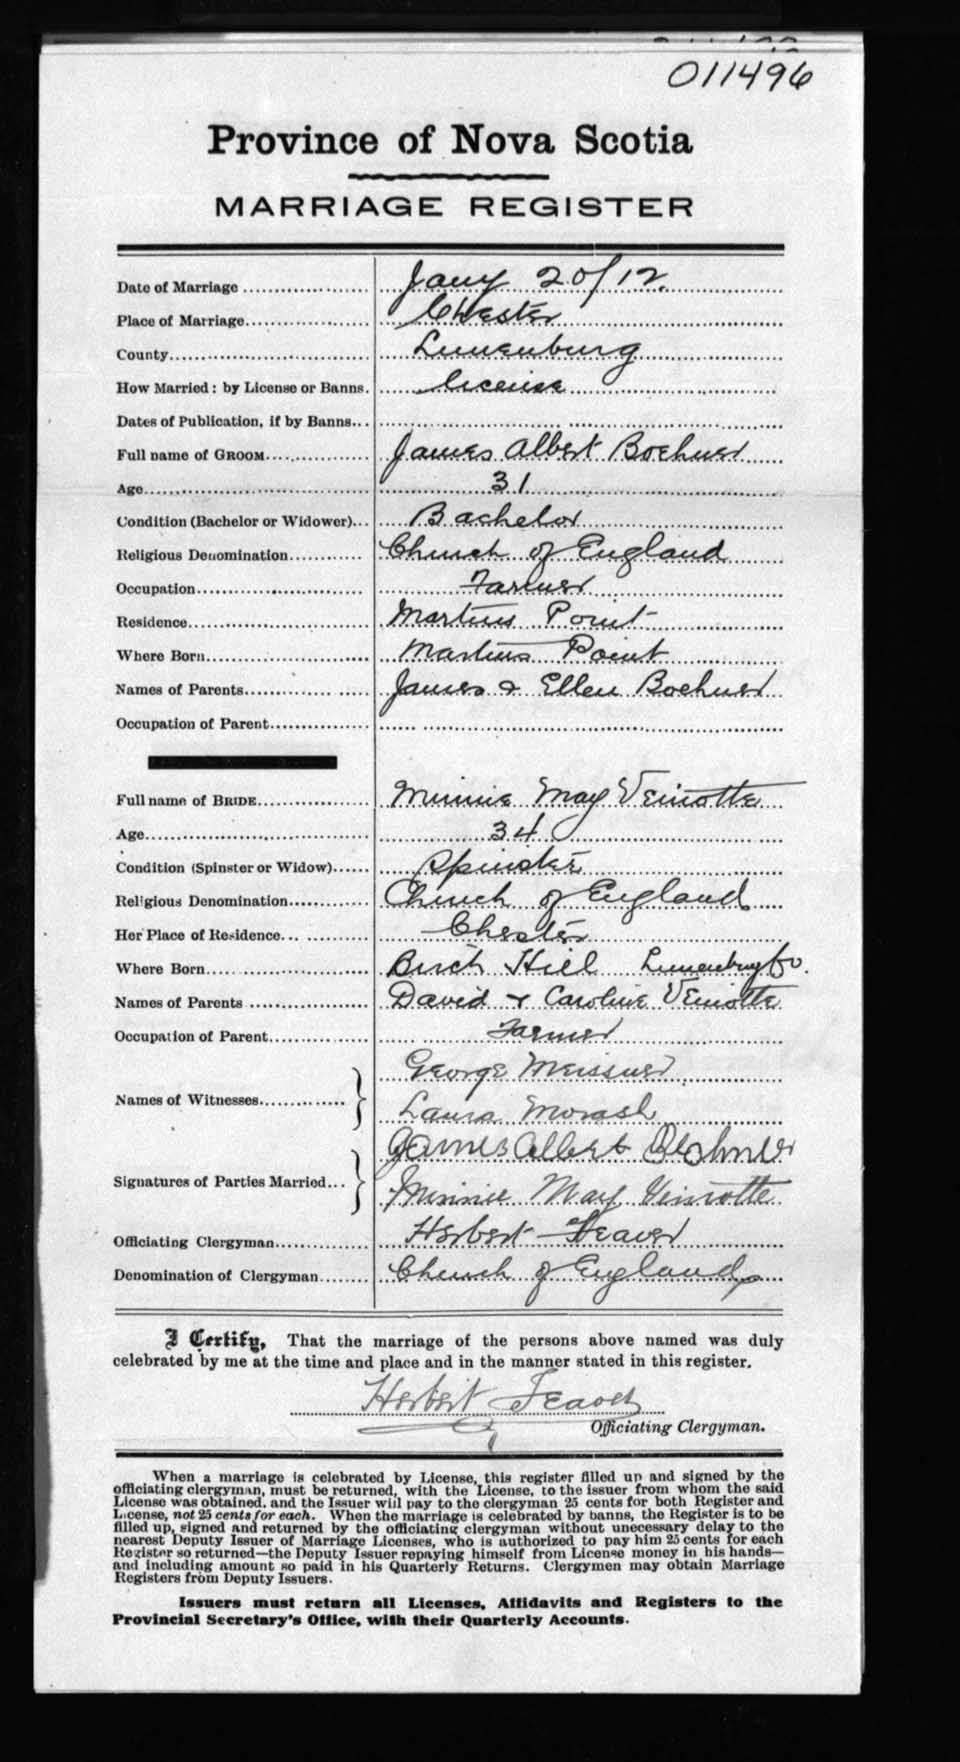 011496
Province of Nova Scotia
MARRIAGE REGISTER
Date of Marriage Jany 20/12.
Place of Marriage Chester
County Lunenburg
How Married: by License or Banns. license
Dates of Publication, if by Banns
Full name of GROOM James Albert Boehner
Age 31
Condition (Bachelor or Widower) Bachelor
Religious Denomination Church of England
Occupation Farmer
Residence Martins Point
Where Born Martins Point
Names of Parents James & Ellen Boehner
Occupation of Parent
Full name of BRIDE Minnie May Veinotte
Age 34
Condition (Spinster or Widow) Spinster
Religious Denomination Church of England
Her Place of Residence Chester
Where Born Birch Hill Lunenburg Co.
Names of Parents David & Caroline Veinotte
Occupation of Parent Farmer
George Meissner
Names of Witnesses
Laura Morash
James Albert Bohner
Signatures of Parties Married
Minnie May Veinotte
Officiating Clergyman Herbert Feaver
Denomination of Clergyman Church of England
I Certify, That the marriage of the persons above named was duly
celebrated by me at the time and place and in the manner stated in this register.
Herbert Feaver
Officiating Clergyman.
When a marriage is celebrated by License, this register filled up and signed by the
officiating clergyman, must be returned, with the License, to the issuer from whom the said
License was obtained, and the Issuer will pay to the clergyman 25 cents for both Register and
License, not 25 cents for each. When the marriage is celebrated by banns, the Register is to be
filled up, signed and returned by the officiating clergyman without unnecessary delay to the
nearest Deputy Issuer of Marriage Licenses, who is authorized to pay him 25 cents for each
Register so returned—the Deputy Issuer repaying himself from License money in his hands—
and including amount so paid in his Quarterly Returns. Clergymen may obtain Marriage
Registers from Deputy Issuers.
Issuers must return all Licenses, Affidavits and Registers to the
Provincial Secretary's Office, with their Quarterly Accounts.